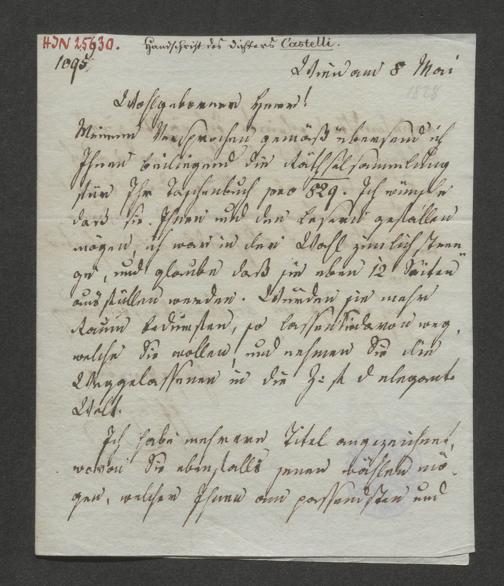 HIN 25630. Handschrift des Dichters Castelli.
1095.
Wien am 8 Mai
1828
Wohlgeborener Herr!
Meinem Versprechen gemäß übersend ich
Ihnen beiliegend die Räthselsammlung
für Ihr Taschenbuch pro 829. Ich wünsche
daß sie Ihnen und den Lesern gefallen
mögen, ich war in der Wahl ziemlich stren
ge, und glaube daß sie eben 12 Seiten
ausfüllen werden. Würden sie mehr
Raum bedürfen, so lassen Sie davon weg,
welche Sie wollen, und nehmen Sie die
Weggelassenen in die Z: f d elegante
Welt.
Ich habe mehrere Titel angezeichnet,
wovon Sie ebenfalls jenen wählen mö-
gen, welcher Ihnen am passendsten und